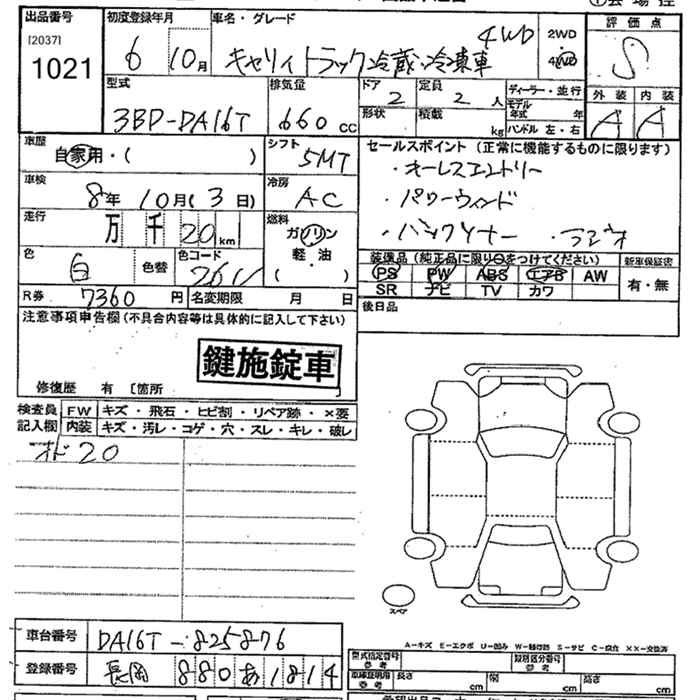 出品番号 初度登録年月 車名・グレード 評価点
[2037] 6 10月 キャリイ トラック冷蔵・冷凍車 4WD 2WD 4WD S
1021
型式 排気量 ドア 定員 ディーラー・並行 外装 内装
3BD-DA16T 660 CC 2 2人 モデル年式 年 A A
形状 積載 kg ハンドル 左・右
車歴 自家用・( ) シフト 5MT セールスポイント (正常に機能するものに限ります)
・キーレスエントリー
車検 8年10月(3日) 冷房 AC ・パワーウィンド
走行 万 千 20 km 燃料 ガソリン ・バックソナー ・ラジオ
軽・油
色 白 色替 色コード 26U ( ) 装備品(純正品に限り○をつけてください) 新車保証書
PS PW ABS エアB AW 有・無
SR ナビ TV カワ
R券 7360円 名変期限 月 日 後日品
注意事項申告欄(不具合内容等は具体的に記入して下さい)
鍵施錠車
修復歴 有 [箇所 ]
検査員 FW キズ・飛石・ヒビ割・リペア跡・×要
記入欄 内装 キズ・汚レ・コゲ・穴・スレ・キレ・破レ
オド20
スペア
車台番号 DA16T-825876
登録番号 長岡 880 あ 1814
A-キズ E-エクボ U-凹み W-補修跡 S-サビ C-腐食 XX-交換済
型式指定番号 参考 類別区分番号 参考
車庫証明用 参考 長さ cm 幅 cm 高さ cm